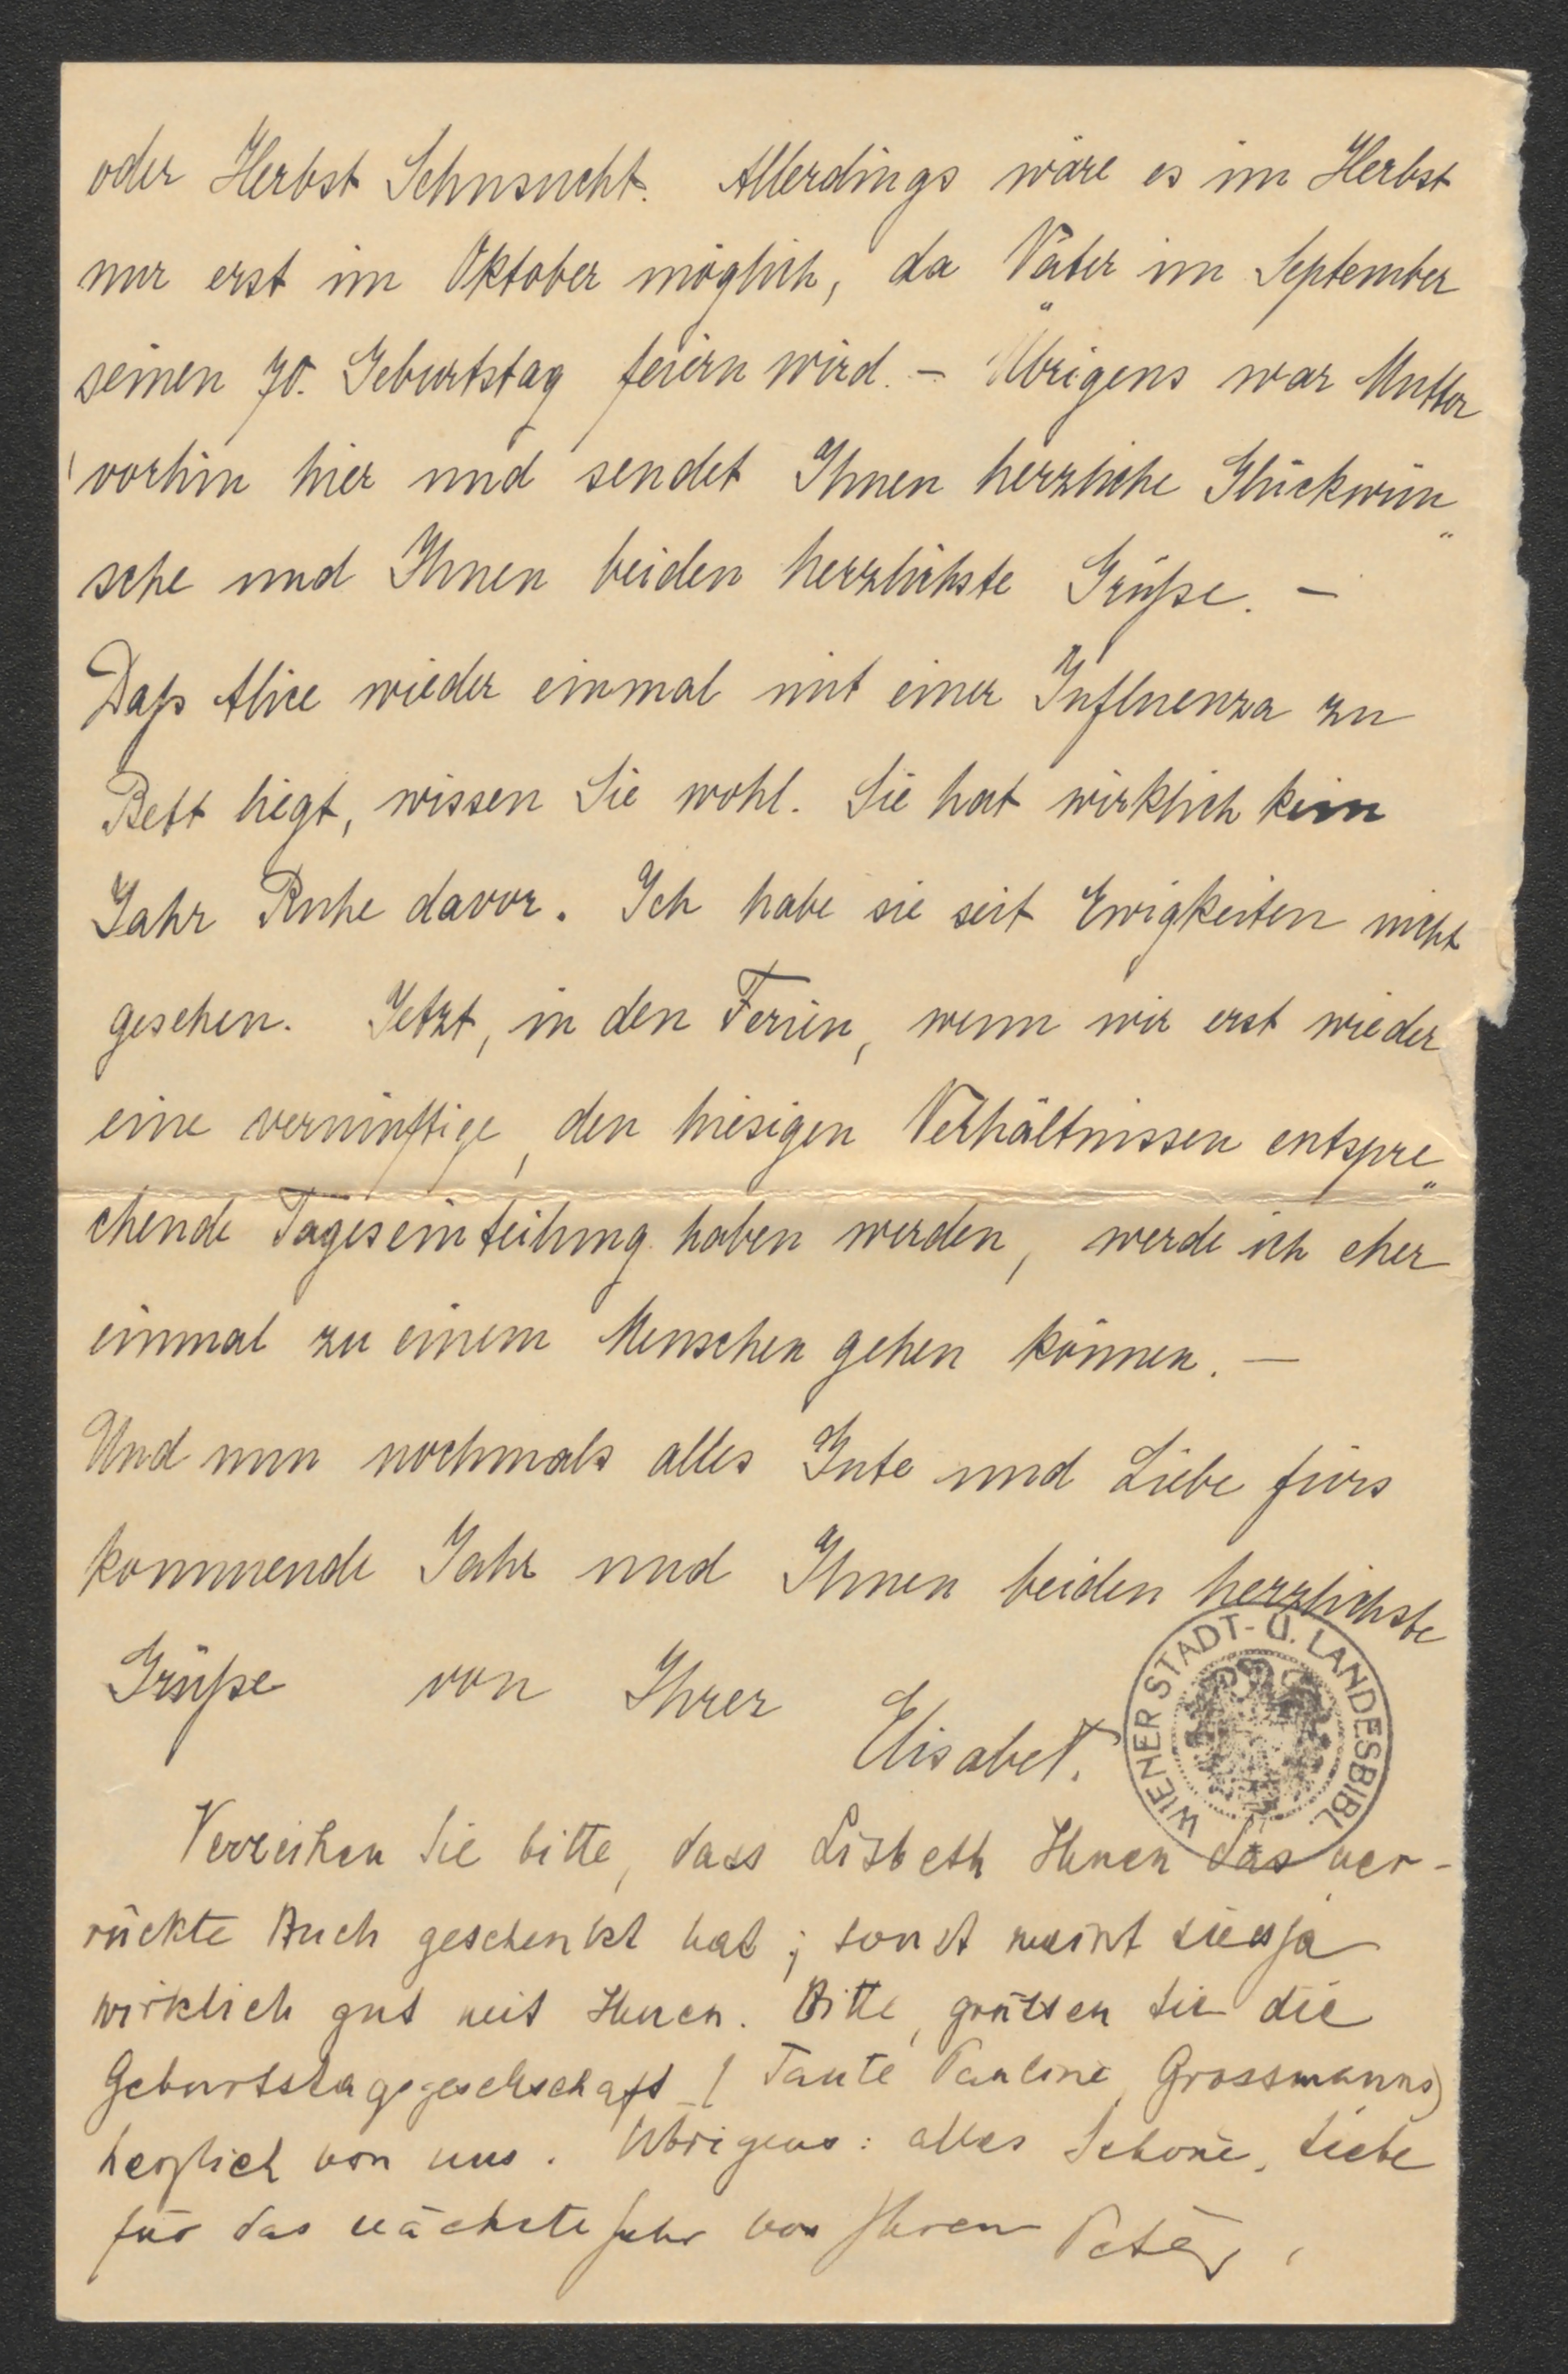 oder Herbst Sehnsucht. Allerdings wäre es im Herbst
nur erst im Oktober möglich, da Vater im September
seinen 70. Geburtstag feiern wird. – Übrigens war Mutter
vorhin hier und sendet Ihnen herzliche Glückwün„
sche und Ihnen beiden herzlichste Grüße. –
Daß Alice wieder einmal mit einer Influenza zu
Bett liegt, wissen Sie wohl. Sie hat wirklich kein
Jahr Ruhe davor. Ich habe sie seit Ewigkeiten nicht
gesehen. Jetzt, in den Ferien, wenn wir erst wieder
eine vernünftige, den hiesigen Verhältnissen entspre„
chende Tageseinteilung haben werden, werde ich eher
einmal zu einem Menschen gehen können. –
Und nun nochmals alles Gute und Liebe fürs
kommende Jahr und Ihnen beiden herzlichste
Grüße von Ihrer
Elisabet.
WIENER STADT- U. LANDESBIBL.
Verzeihen Sie bitte, dass Lisbeth Ihnen das ver-
rückte Buch geschenkt hat; sonst meint sie es ja
wirklich gut mit Ihnen. Bitte, grüssen Sie die
Geburtstagsgesellschaft (Tante Pauline, Grossmanns)
herzlich von uns. Übrigens: alles Schöne, Liebe
für das nächste Jahr von Ihrem Peter.